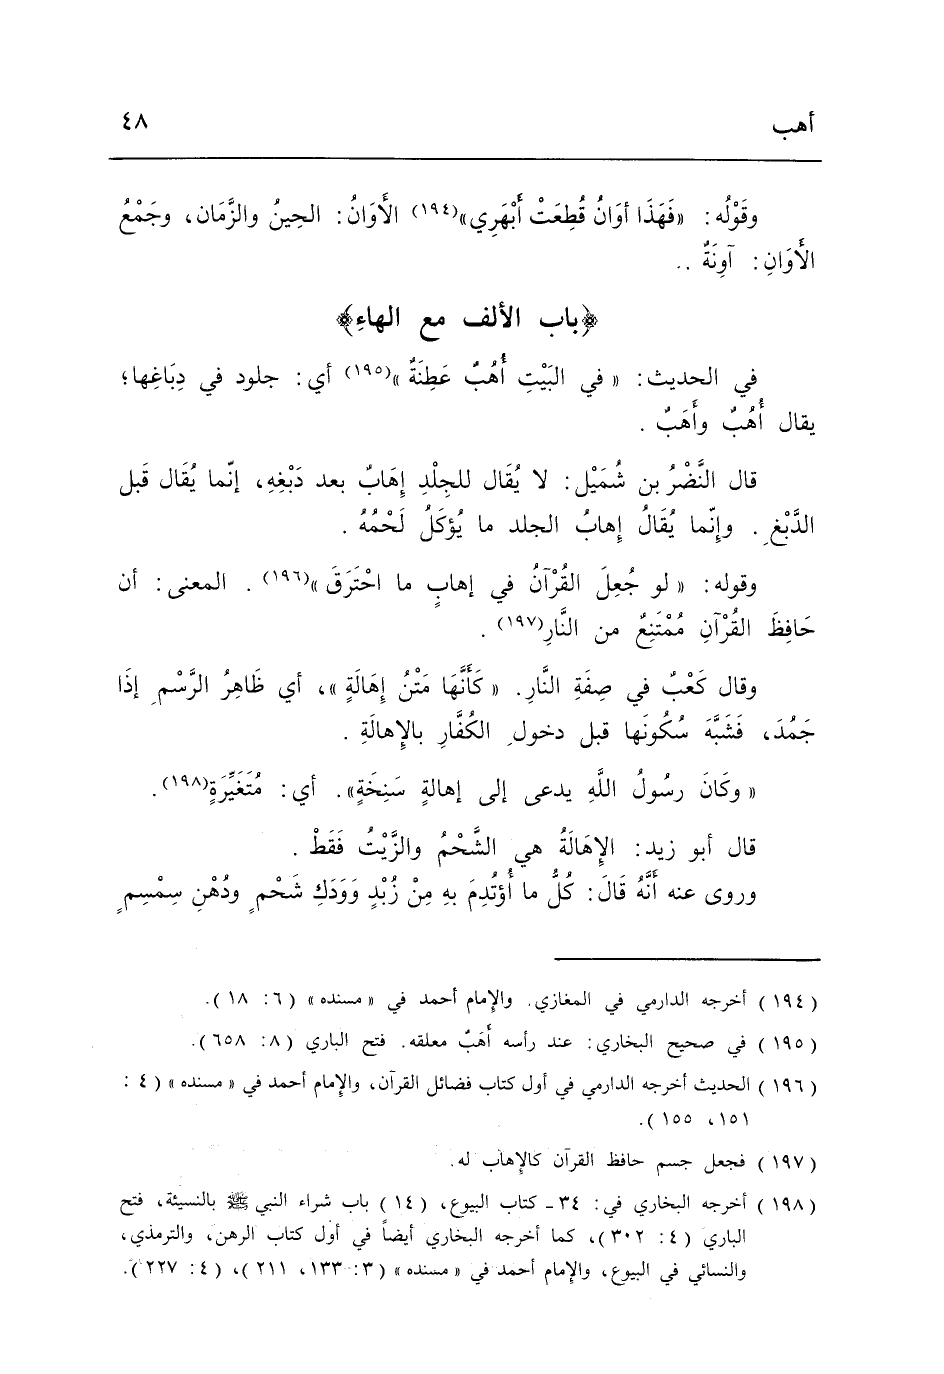 أهب
٤٨
وقَوْلُه: «فَهَذَا أوَانُ قُطِعَتْ أَبْهَرِي»(١٩٤) الأَوَانُ: الحِينُ والزَّمَان، وجَمْعُ
الأَوَانِ: آوِنَةٌ ..
﴿باب الألف مع الهاءِ﴾
في الحديث: « في البَيْتِ أُهُبٌ عَطِنَةٌ »(١٩٥) أي: جلود في دِبَاغِها؛
يقال أُهُبٌ وأَهَبٌ .
قال النَّضْرُ بن شُمَيْل: لا يُقَال للجِلْدِ إِهَابٌ بعد دَبْغِهِ، إنّما يُقَال قَبل
الدَّبْغِ . وإنّما يُقَالُ إِهابُ الجلد ما يُؤكَلُ لَحْمُهُ .
وقوله: « لو جُعِلَ القُرْآنُ في إهابٍ ما احْتَرَقَ »(١٩٦) . المعنى: أن
حَافِظَ القُرْآنِ مُمْتَنِعٌ من النَّارِ(١٩٧) .
وقال كَعْبٌ في صِفَةِ النَّارِ. « كَأَنَّهَا مَتْنُ إِهَالَةٍ »، أي ظَاهِرُ الرَّسْمِ إذَا
جَمُدَ، فَشَبَّهَ سُكُونَها قبل دخولِ الكُفَّارِ بالإِهالَةِ .
« وكَانَ رسُولُ اللَّهِ يدعى إلى إهالةٍ سَنِخَةٍ». أي: مُتَغَيِّرَةٍ(١٩٨).
قال أبو زيد: الإِهَالَةُ هي الشَّحْمُ والزَّيْتُ فَقَطْ .
وروى عنه أَنَّهُ قَالَ: كُلُّ ما أُوْتُدِمَ بِهِ مِنْ زُبْدٍ وَوَدَكِ شَحْمٍ ودُهْنِ سِمْسِمٍ
(١٩٤) أخرجه الدارمي في المغازي. والإمام أحمد في « مسنده » (٦: ١٨).
(١٩٥) في صحيح البخاري: عند رأسه أَهَبٌ معلقه. فتح الباري (٨: ٦٥٨).
(١٩٦) الحديث أخرجه الدارمي في أول كتاب فضائل القرآن، والإمام أحمد في « مسنده » (٤ :
١٥١، ١٥٥).
(١٩٧) فجعل جسم حافظ القرآن كالإهاب له.
(١٩٨) أخرجه البخاري في: ٣٤ـ كتاب البيوع، (١٤) باب شراء النبي ﷺ بالنسيئة، فتح
الباري (٤: ٣٠٢)، كما أخرجه البخاري أيضاً في أول كتاب الرهن، والترمذي،
والنسائي في البيوع، والإمام أحمد في « مسنده » (٣: ١٣٣، ٢١١)، (٤: ٢٢٧).